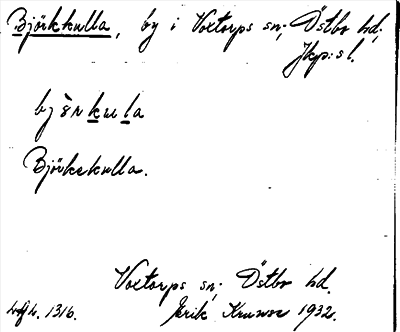 Björkkulla, by i Voxtorps sn; Östbo hd,
Jkp:s l.
björkula
Björkekulla.
Voxtorps sn; Östbo hd.
1316. Erik 1932.